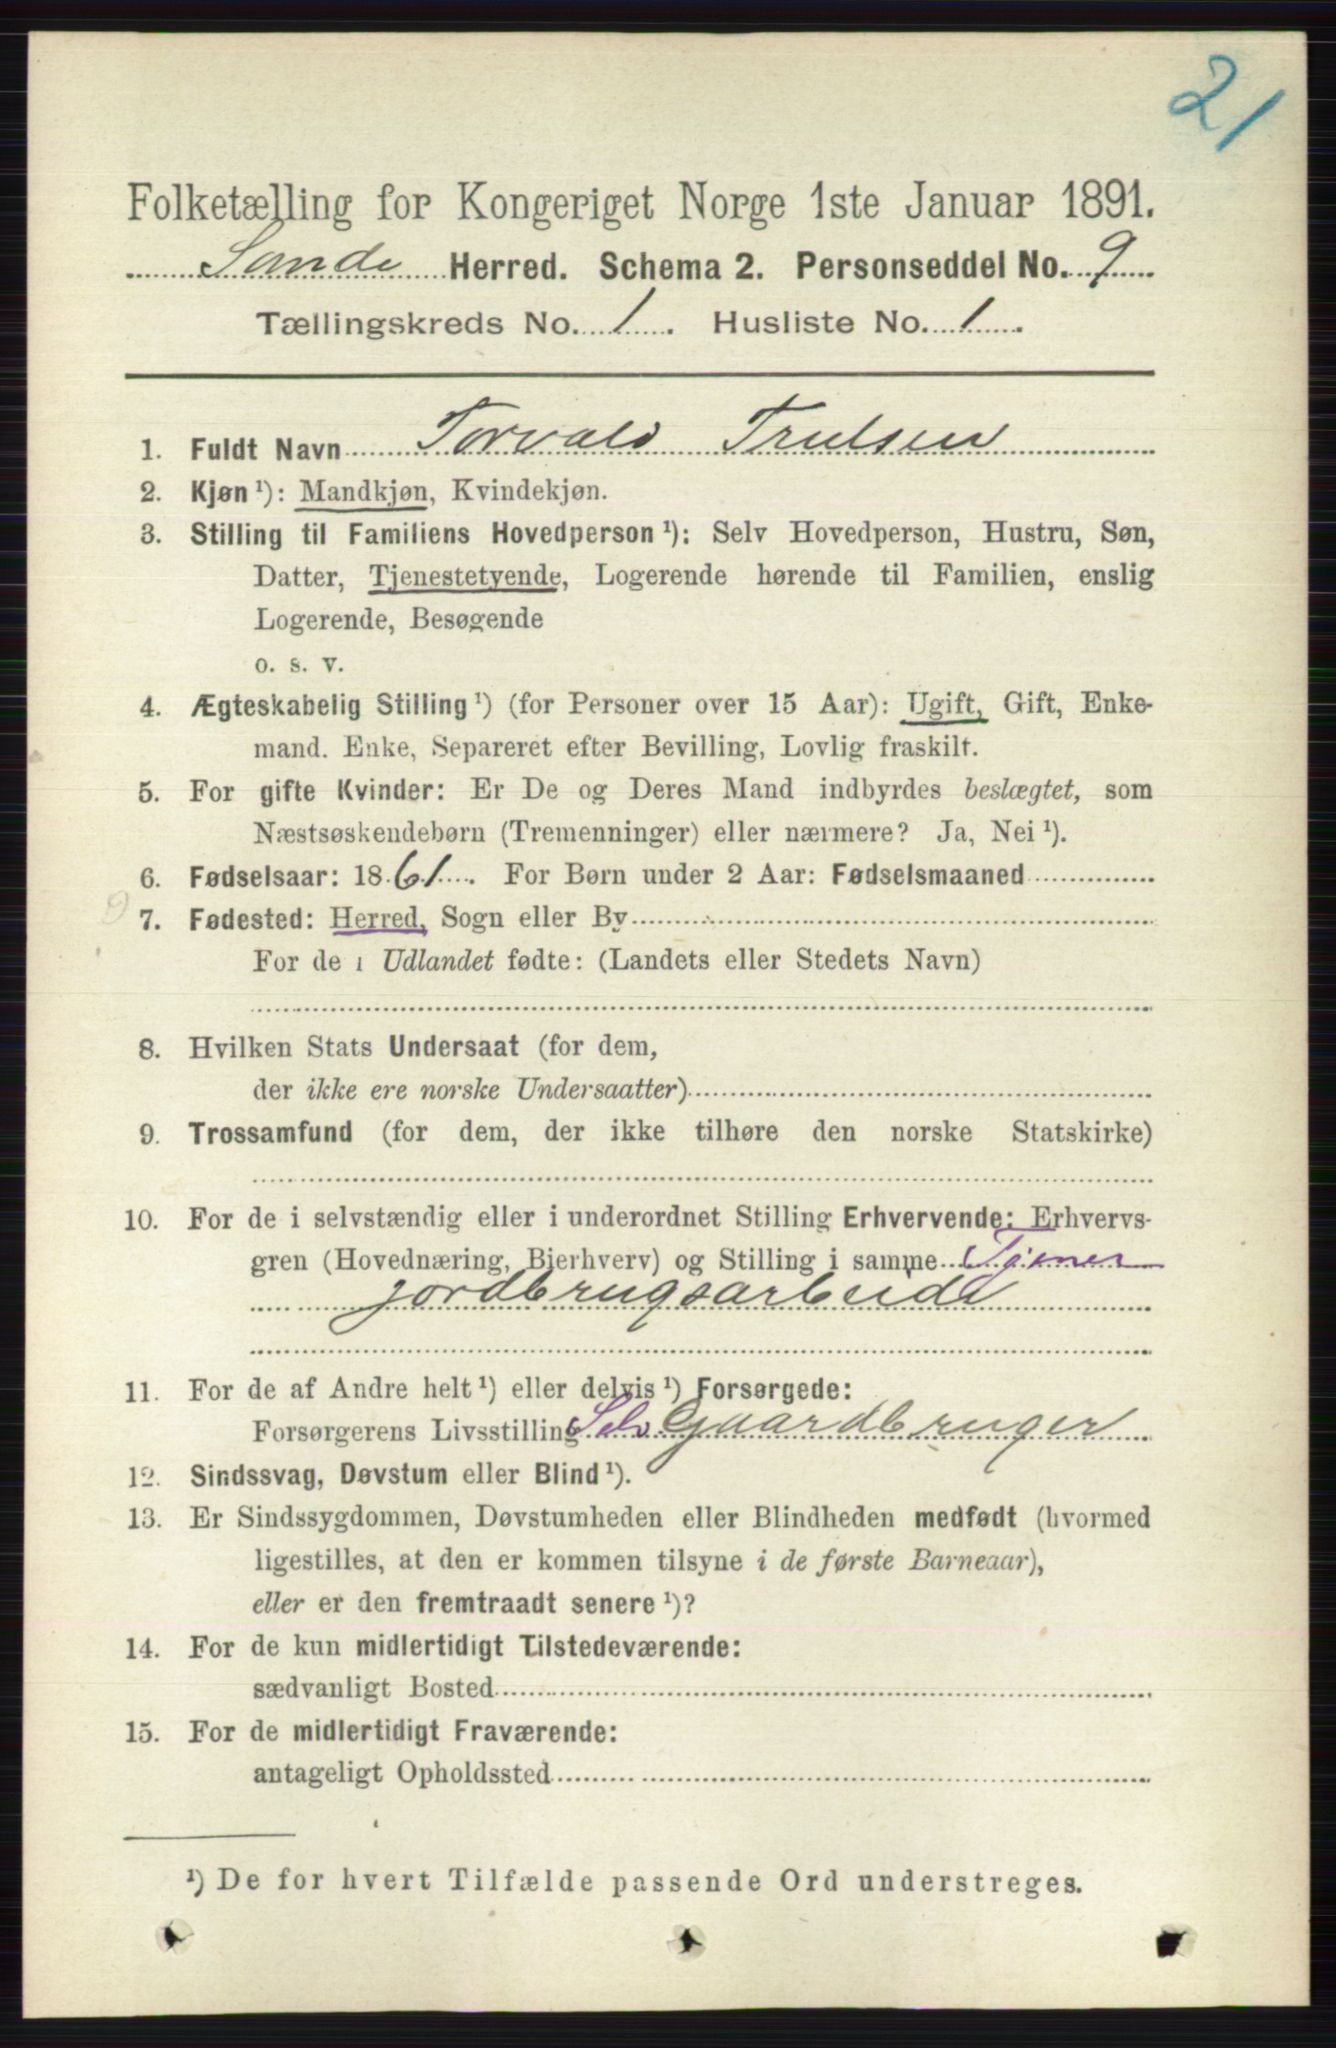 21
Folketælling for Kongeriget Norge 1ste Januar 1891.
Sande Herred. Schema 2. Personseddel No. 9
Tællingskreds No. 1. Husliste No. 1.
1. Fuldt Navn Torvald Trulsen
2. Kjøn ¹): Mandkjøn, Kvindekjøn.
3. Stilling til Familiens Hovedperson ¹): Selv Hovedperson, Hustru, Søn,
Datter, Tjenestetyende, Logerende hørende til Familien, enslig
Logerende, Besøgende
o. s. v.
4. Ægteskabelig Stilling ¹) (for Personer over 15 Aar): Ugift, Gift, Enke-
mand. Enke, Separeret efter Bevilling, Lovlig fraskilt.
5. For gifte Kvinder: Er De og Deres Mand indbyrdes beslægtet, som
Næstsøskendebørn (Tremenninger) eller nærmere? Ja, Nei ¹).
6. Fødselsaar: 1861. For Børn under 2 Aar: Fødselsmaaned
7. Fødested: Herred, Sogn eller By
For de i Udlandet fødte: (Landets eller Stedets Navn)
8. Hvilken Stats Undersaat (for dem,
der ikke ere norske Undersaatter)
9. Trossamfund (for dem, der ikke tilhøre den norske Statskirke)
10. For de i selvstændig eller i underordnet Stilling Erhvervende: Erhvervs-
gren (Hovednæring, Bierhverv) og Stilling i samme Tjener
jordbrugsarbeide
11. For de af Andre helt ¹) eller delvis ¹) Forsørgede:
Forsørgerens Livsstilling Selv Gaardbruger
12. Sindssvag, Døvstum eller Blind ¹).
13. Er Sindssygdommen, Døvstumheden eller Blindheden medfødt (hvormed
ligestilles, at den er kommen tilsyne i de første Barneaar),
eller er den fremtraadt senere ¹)?
14. For de kun midlertidigt Tilstedeværende:
sædvanligt Bosted
15. For de midlertidigt Fraværende:
antageligt Opholdssted
¹) De for hvert Tilfælde passende Ord understreges.